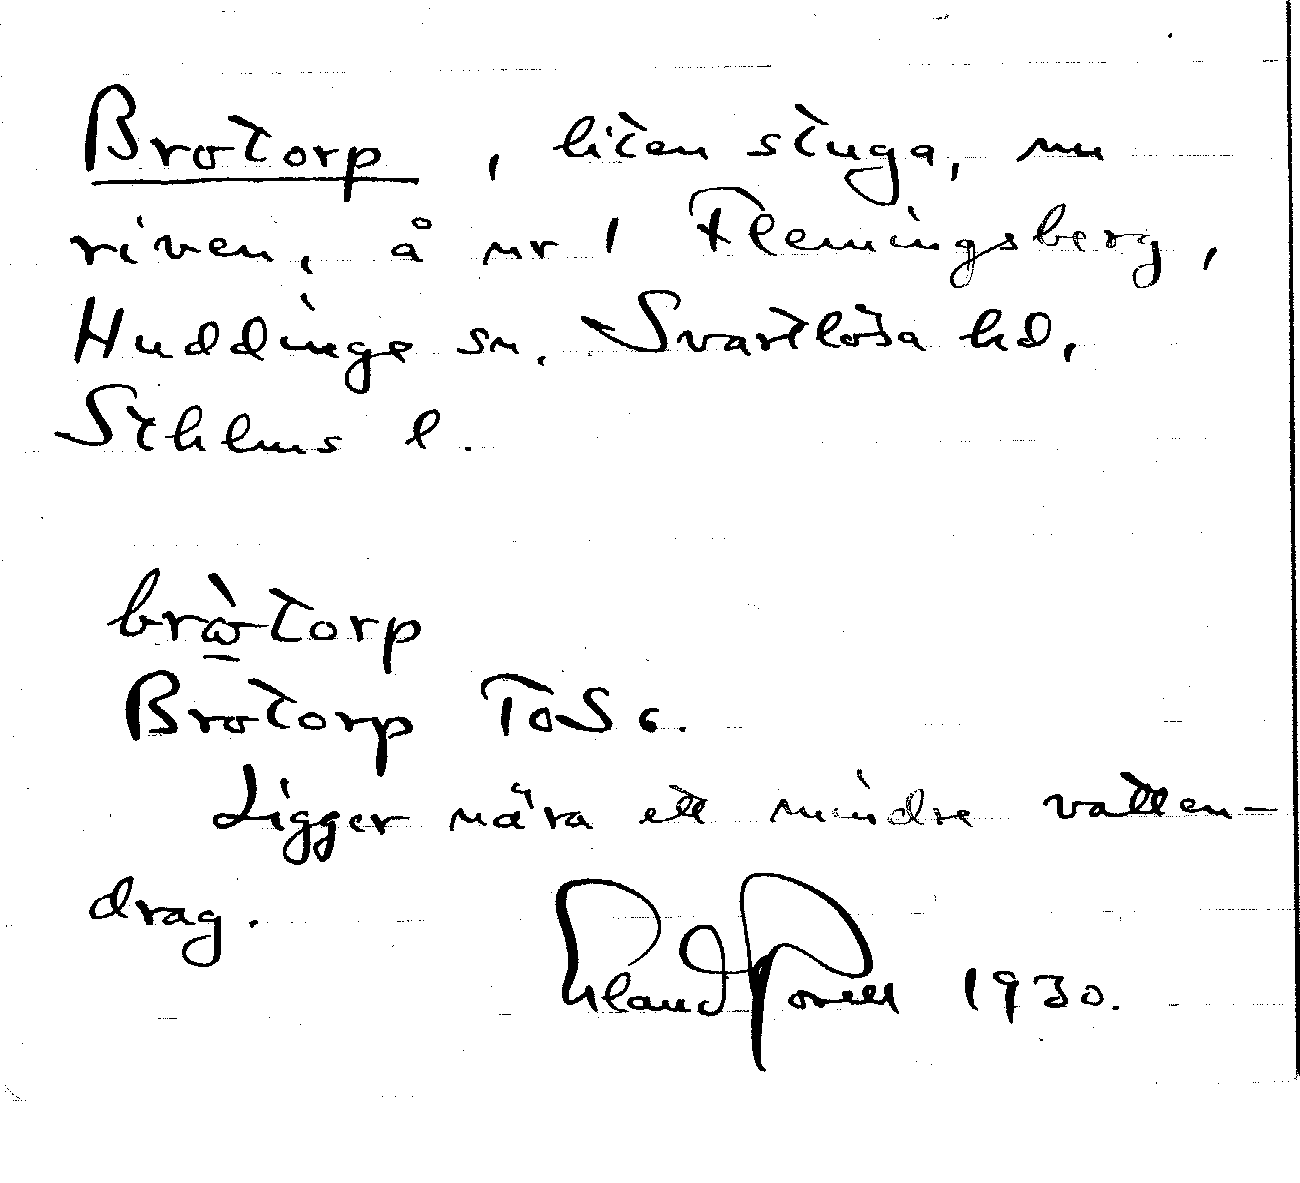 Brotorp, liten stuga, nu
riven, å nr 1 Flemingsberg,
Huddinge sn. Svartlösa hd,
Sthlms l.
brὼtorp
Brotorp ToS6.
Ligger nära ett mindre vatten-
drag.
1930.